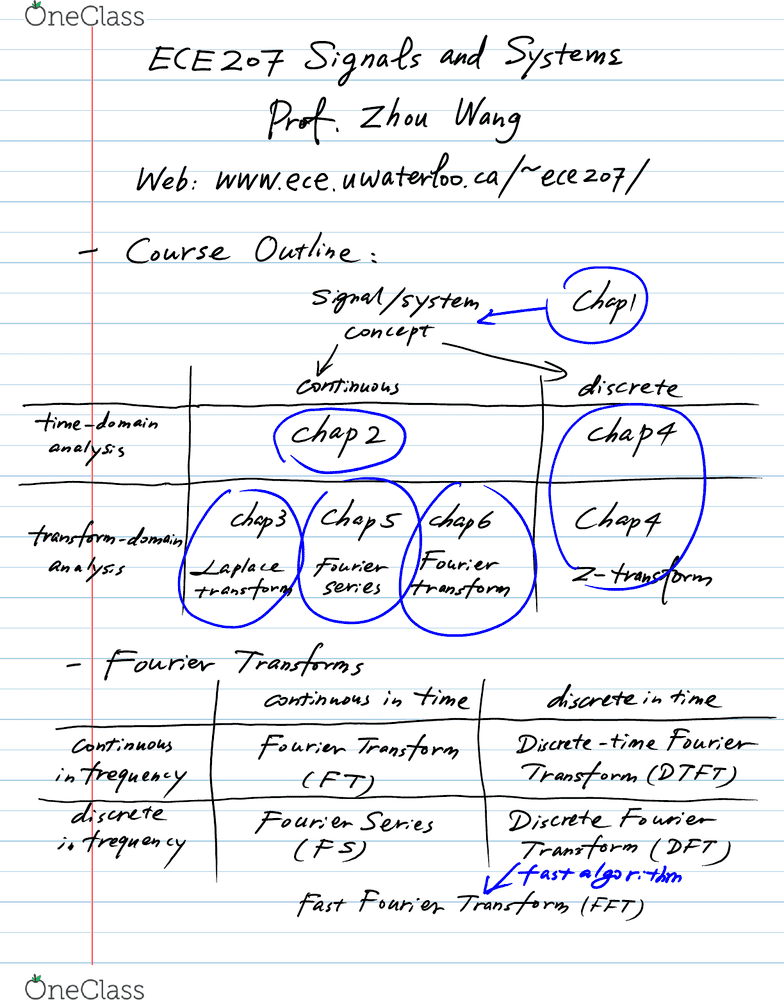 OneClass
ECE207 Signals and Systems
Prof. Zhou Wang
Web: www.ece.uwaterloo.ca/~ece207/
- Course Outline:
Signal/system
concept
Chap1
continuous
discrete
time-domain
analysis
Chap 2
Chap4
transform-domain
analysis
Chap3
Laplace
transform
Chap5
Fourier
series
Chap6
Fourier
transform
Chap4
Z-transform
- Fourier Transforms
continuous in time
discrete in time
continuous
in frequency
Fourier Transform
(FT)
Discrete-time Fourier
Transform (DTFT)
discrete
in frequency
Fourier Series
(FS)
Discrete Fourier
Transform (DFT)
fast algorithm
Fast Fourier Transform (FFT)
OneClass